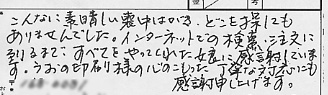 こんなに素晴しい喪中はがき、どこを探しても
ありませんでした。インターネットでの検索、注文に
到るまで、すべてをやってくれた娘に感謝しています。
うおの印刷様の心のこもった丁寧な対応にも
感謝申し上げます。